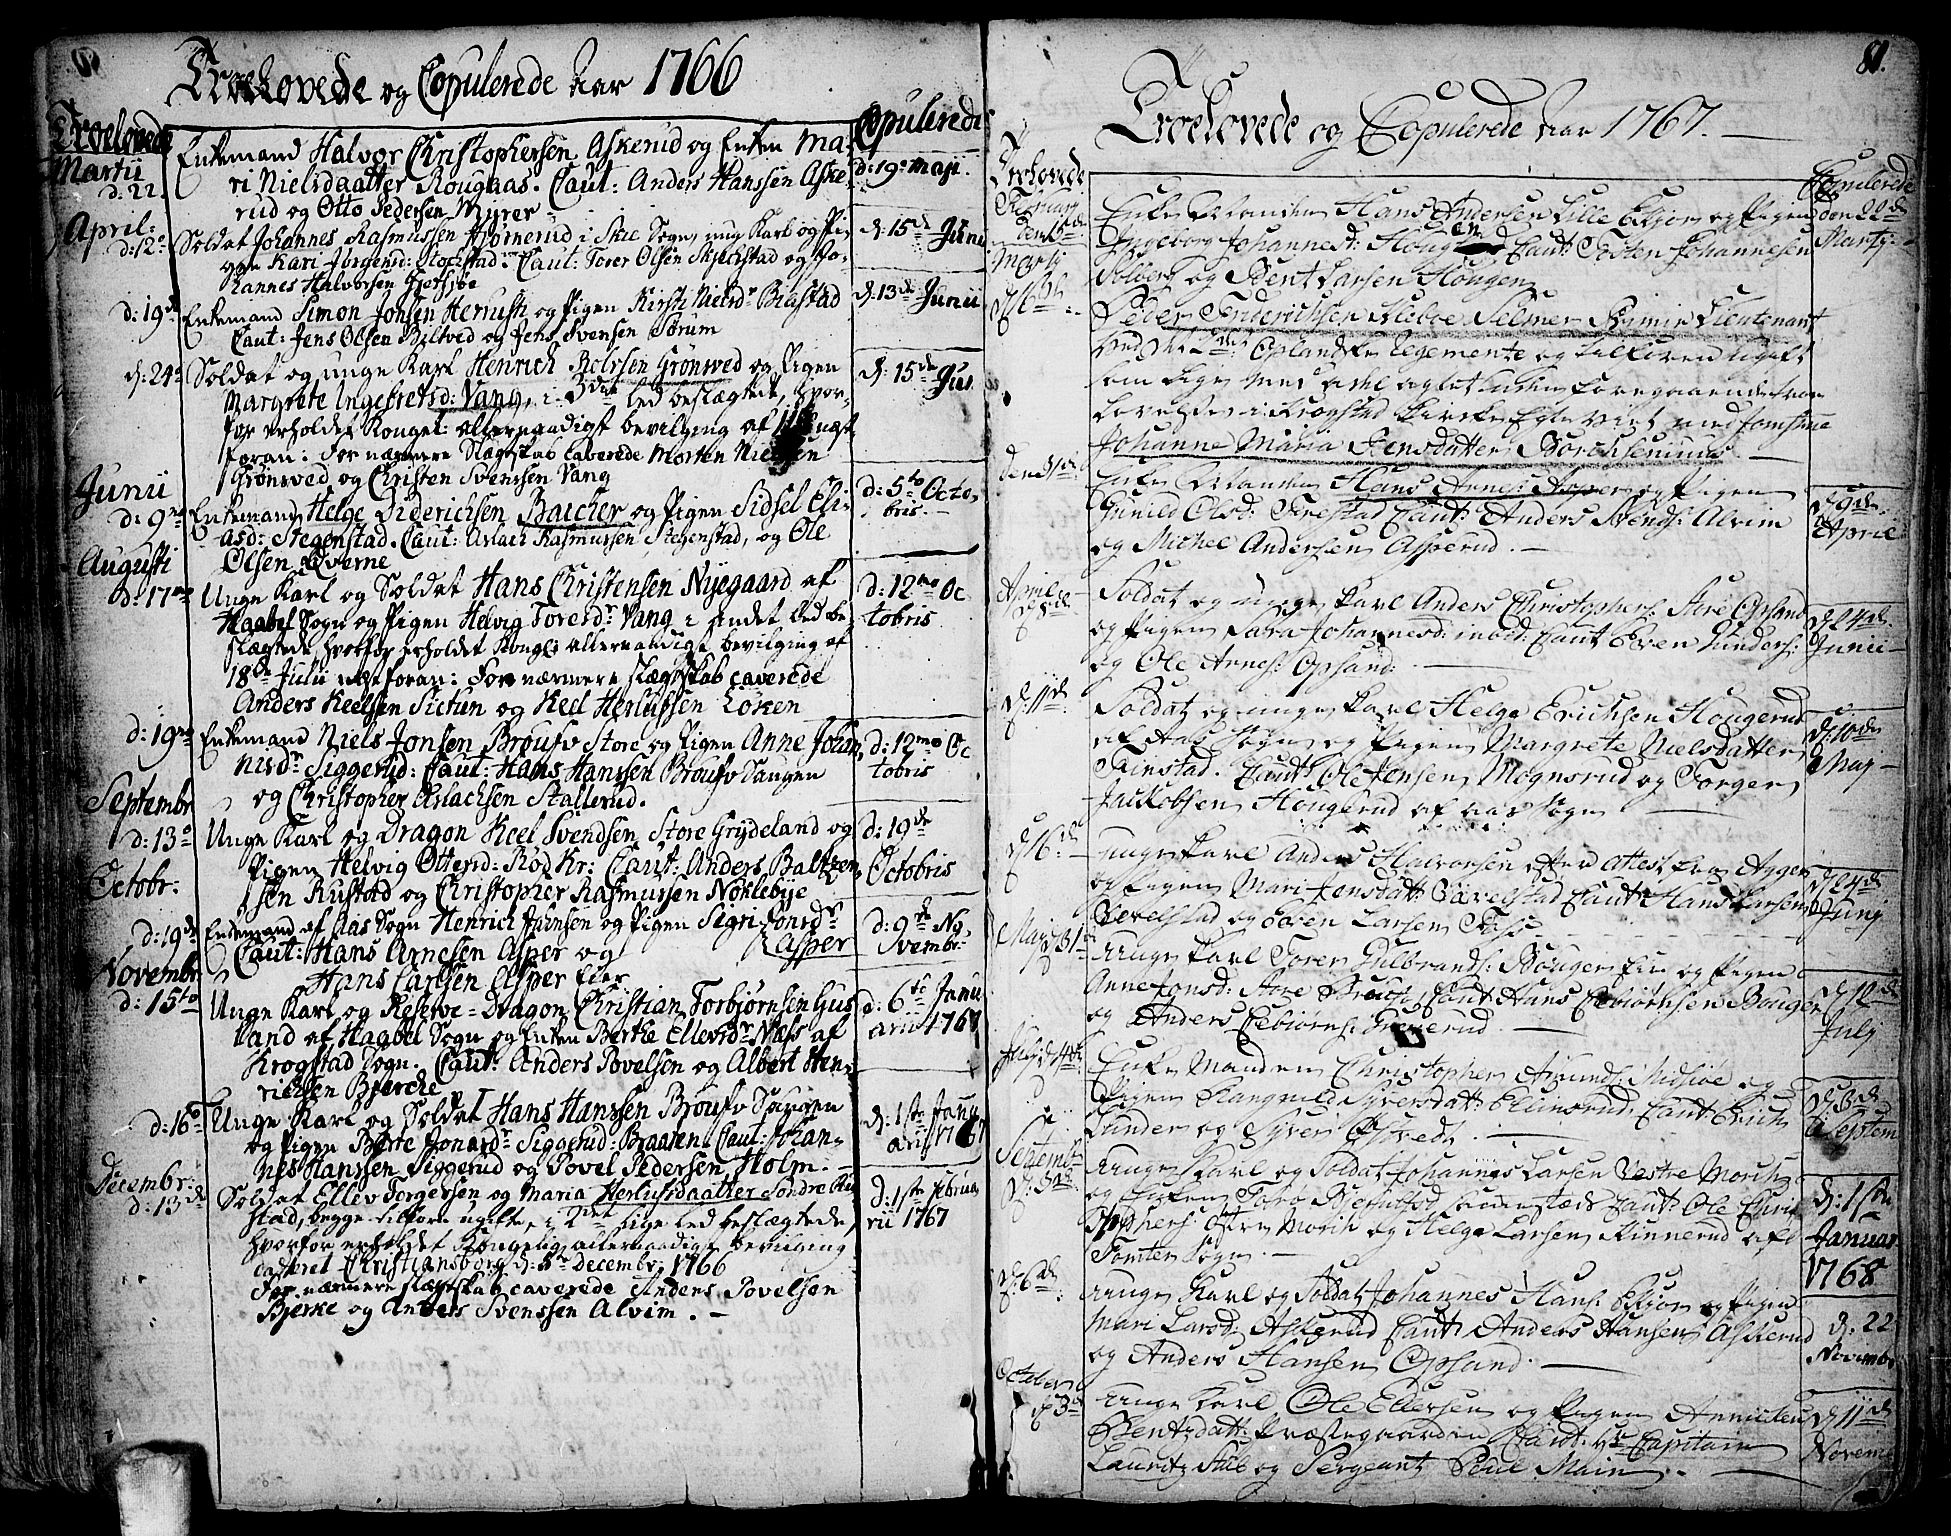 Troelovede og Copulerede Aar 1766
Troelovede
Copulerede
Martii
d: 22.
Enkemand Halvor Christophersen Askerud og Enken Ma-
ri Nielsdaatter Rougaas. Caut: Anders Hanssen Aske-
rud og Otto Pedersen Myrer
d: 19 Maji.
April:
d: 12
Soldat Johannes Rasmussen Hjørnerud i Skie Sogn, ung Karl og Pi-
gen Kari Jørgensd: Stockstad. Caut: Torer Olsen Skjechstad og Jo-
hannes Halvorsen Gjersjøe
d: 15de Junii
d: 19de
Enkemand Simon Jonsen Herrust og Pigen Kirsti Nielsdr Brastad
Caut: Jens Olsen Biltved og Jens Svensen Sørum
d: 13de Junii
d: 24
Soldat og unge Karl Henrich Rolvsen Grønsved og Pigen
Margrete Ingebretsd: Vang, i 3die led beslægtede, hvor-
for erholdet Kongel: allernaadigst bevilging af
foran: For nærmere Slægtskab caverede Morten Nielsen
Grønsved og Christen Svenssen Vang
d: 15de Jul
Junii
d: 9
Enkemand Helge Diderichsen Batcher og Pigen Sidsel Eli-
asd: Stegenstad. Caut: Aslach Rasmussen Stegenstad, og Ole
Olsen Qverne
d: 5to Octo,
bris.
Augusti
d: 17
Unge Karl og Soldat Hans Christensen Nyegaard af
Haabel Sogn og Pigen Helvig Toresdr Vang i andet Led be-
slægtede hvorfor erholdet Kongl: allernaadigst bevilging af
18de Julii næst foran: For nærmere slægtskab caverede
Anders Keelsen Sictun og Keel Herlufsen Løken
d: 12mo Oc
tobris
d: 19
Enkemand Niels Jonsen Broufv Store og Pigen Anne Johan
nisdr Siggerud: Caut: Hans Hanssen Broufv Saugen
og Christopher Aslachsen Stallerud.
d: 12mo Oc
tobris
Septembr
d: 13
Unge Karl og Dragon Keel Svendsen Store Grydeland og
Pigen Helvig Ottersd: Rød Kr: Caut: Anders Baltzer
sen Rustad og Christopher Rasmussen Nøklebye
d: 19de
Octobris
Octobr:
d: 19de
Enkemand af Aas Sogn Henrich Jørnsen og Pigen Sigri Jonsdr
Asper
Caut: Hans Arnesen Asper og
Hans Larsen Asper Eier
d: 9de No
vembr:
Novembr
d: 15to
Unge Karl og Reserve-Dragon Christian Torbjørnsen Gus
land af Haabel Sogn og Enken Berthe Ellevsdr Næss af
Krogstad Sogn. Caut: Anders Povelsen og Albert Hen-
richsen Bjerche
d: 6te Janu
arii 1767
d: 16
Unge Karl og Soldat Hans Hanssen Broufv Saugen
og Pigen Berte Jonardr Siggerud: Braaten. Caut: Johan-
nes Hanssen Siggerud og Povel Pedersen Holm.
d: 1ste Janu
arii 1767
Decembr:
d: 13de
Soldat Ellev Torgersen og Maria Herlufsdaatter Søndre Ru-
stad, begge tilforn ugifte, i 2det lige led beslægtede,
hvorfor erholdet Kongelig allernaadigst bevilging
dateret Christiansborg d: 5te Decembr: 1766
For nærmere slægtskab caverede Anders Povelsen
Bjerke og Anders Svenssen Alvim.
d: 1ste Februa
rii 1767
81.
Troelovede og Copulerede Aar 1767.
Troelovede
Copulerede
Enke Manden Hans Andersen Lille Eskjør og Pigen
Ingeborg Johannesd: Hougen Caut: Tosten Johannesen
Solberg og Bent Larsen Hougen
den 22de
Martij
Martij
d: 16de
Peder Friderichsen Kleboe Selmer Premier Lieutenant
ved det Oplandske Regemente og tilforn ugift
Lovelse i Krogstad Kirke med Jomfrue
Johanne Maria Jensdatter Borchsenius
den 31de
Enke Manden Hans Arnes: Asper og Pigen
Gunild Olsd: Tirestad Caut: Anders Svends: Alvim
og Michel Andersen Asperud.
d: 9de
April
April
d: 8de
Soldat og unge Karl Anders Christophers: Store Opsand
og Pigen Sara Johannesd: inbid: Caut Even Gunders:
og Ole Arnes: Opsand:
d: 24de
Junii
d: 11de
Soldat og unge Karl Helge Erichsen Hougerud
af Aas Sogn og Pigen Margrete Nielsdatter
Tainstad. Caut: Ole Jensen Mognsrud og Torger
Jackobsen Hougerud af Aas Sogn
d: 10de
Maj
d: 16de
unge Karl Anders Halvorsen efter Attest fra Agger
og Pigen Mari Jonsdatt: Sævelstad Caut: Hans Larsen
Sevelstad og Soren Larsen Taje
d: 24de
Junj
Maj d: 31
unge Karl Torer Gulbrands: Bouger Eier og Pigen
Anne Jonsd: Store Broufv Caut Hans Esbiørnsen Bouger
og Anders Esbiørns:
d: 12de
Julj
July d: 4de
Enke Manden Christopher Amunds: Midsiøe og
Pigen Rangnild Syversdatt: Ellinsrud Caut Erich
Gunders: og Syver Estvedt.
d: 3de
Septem
Septembr
d: 3die
unge Karl og Soldat Johannes Larsen Vestre Morch
og Pigen Torø Caut: Ole Chri
stophers: Østre Morch og Helge Larsen Kinnerud af
Tomter Sogn.
d: 1ste
Januar
1768
d: 6te
unge Karl og Soldat Johannes Hans: Eskjør og Pigen
Mari Larsd: Askerud Caut Anders Hansen Askerud
og Anders Hansen Opsand.
d: 22
Novembr
October
d: 3de
unge Karl Ole Ellersen og Pigen Annichen
Bentzdatt: Præstegaarden Caut: Hr Capitain
Lauritz Stub og Sergeant Poul Main.
d: 11de
Novem